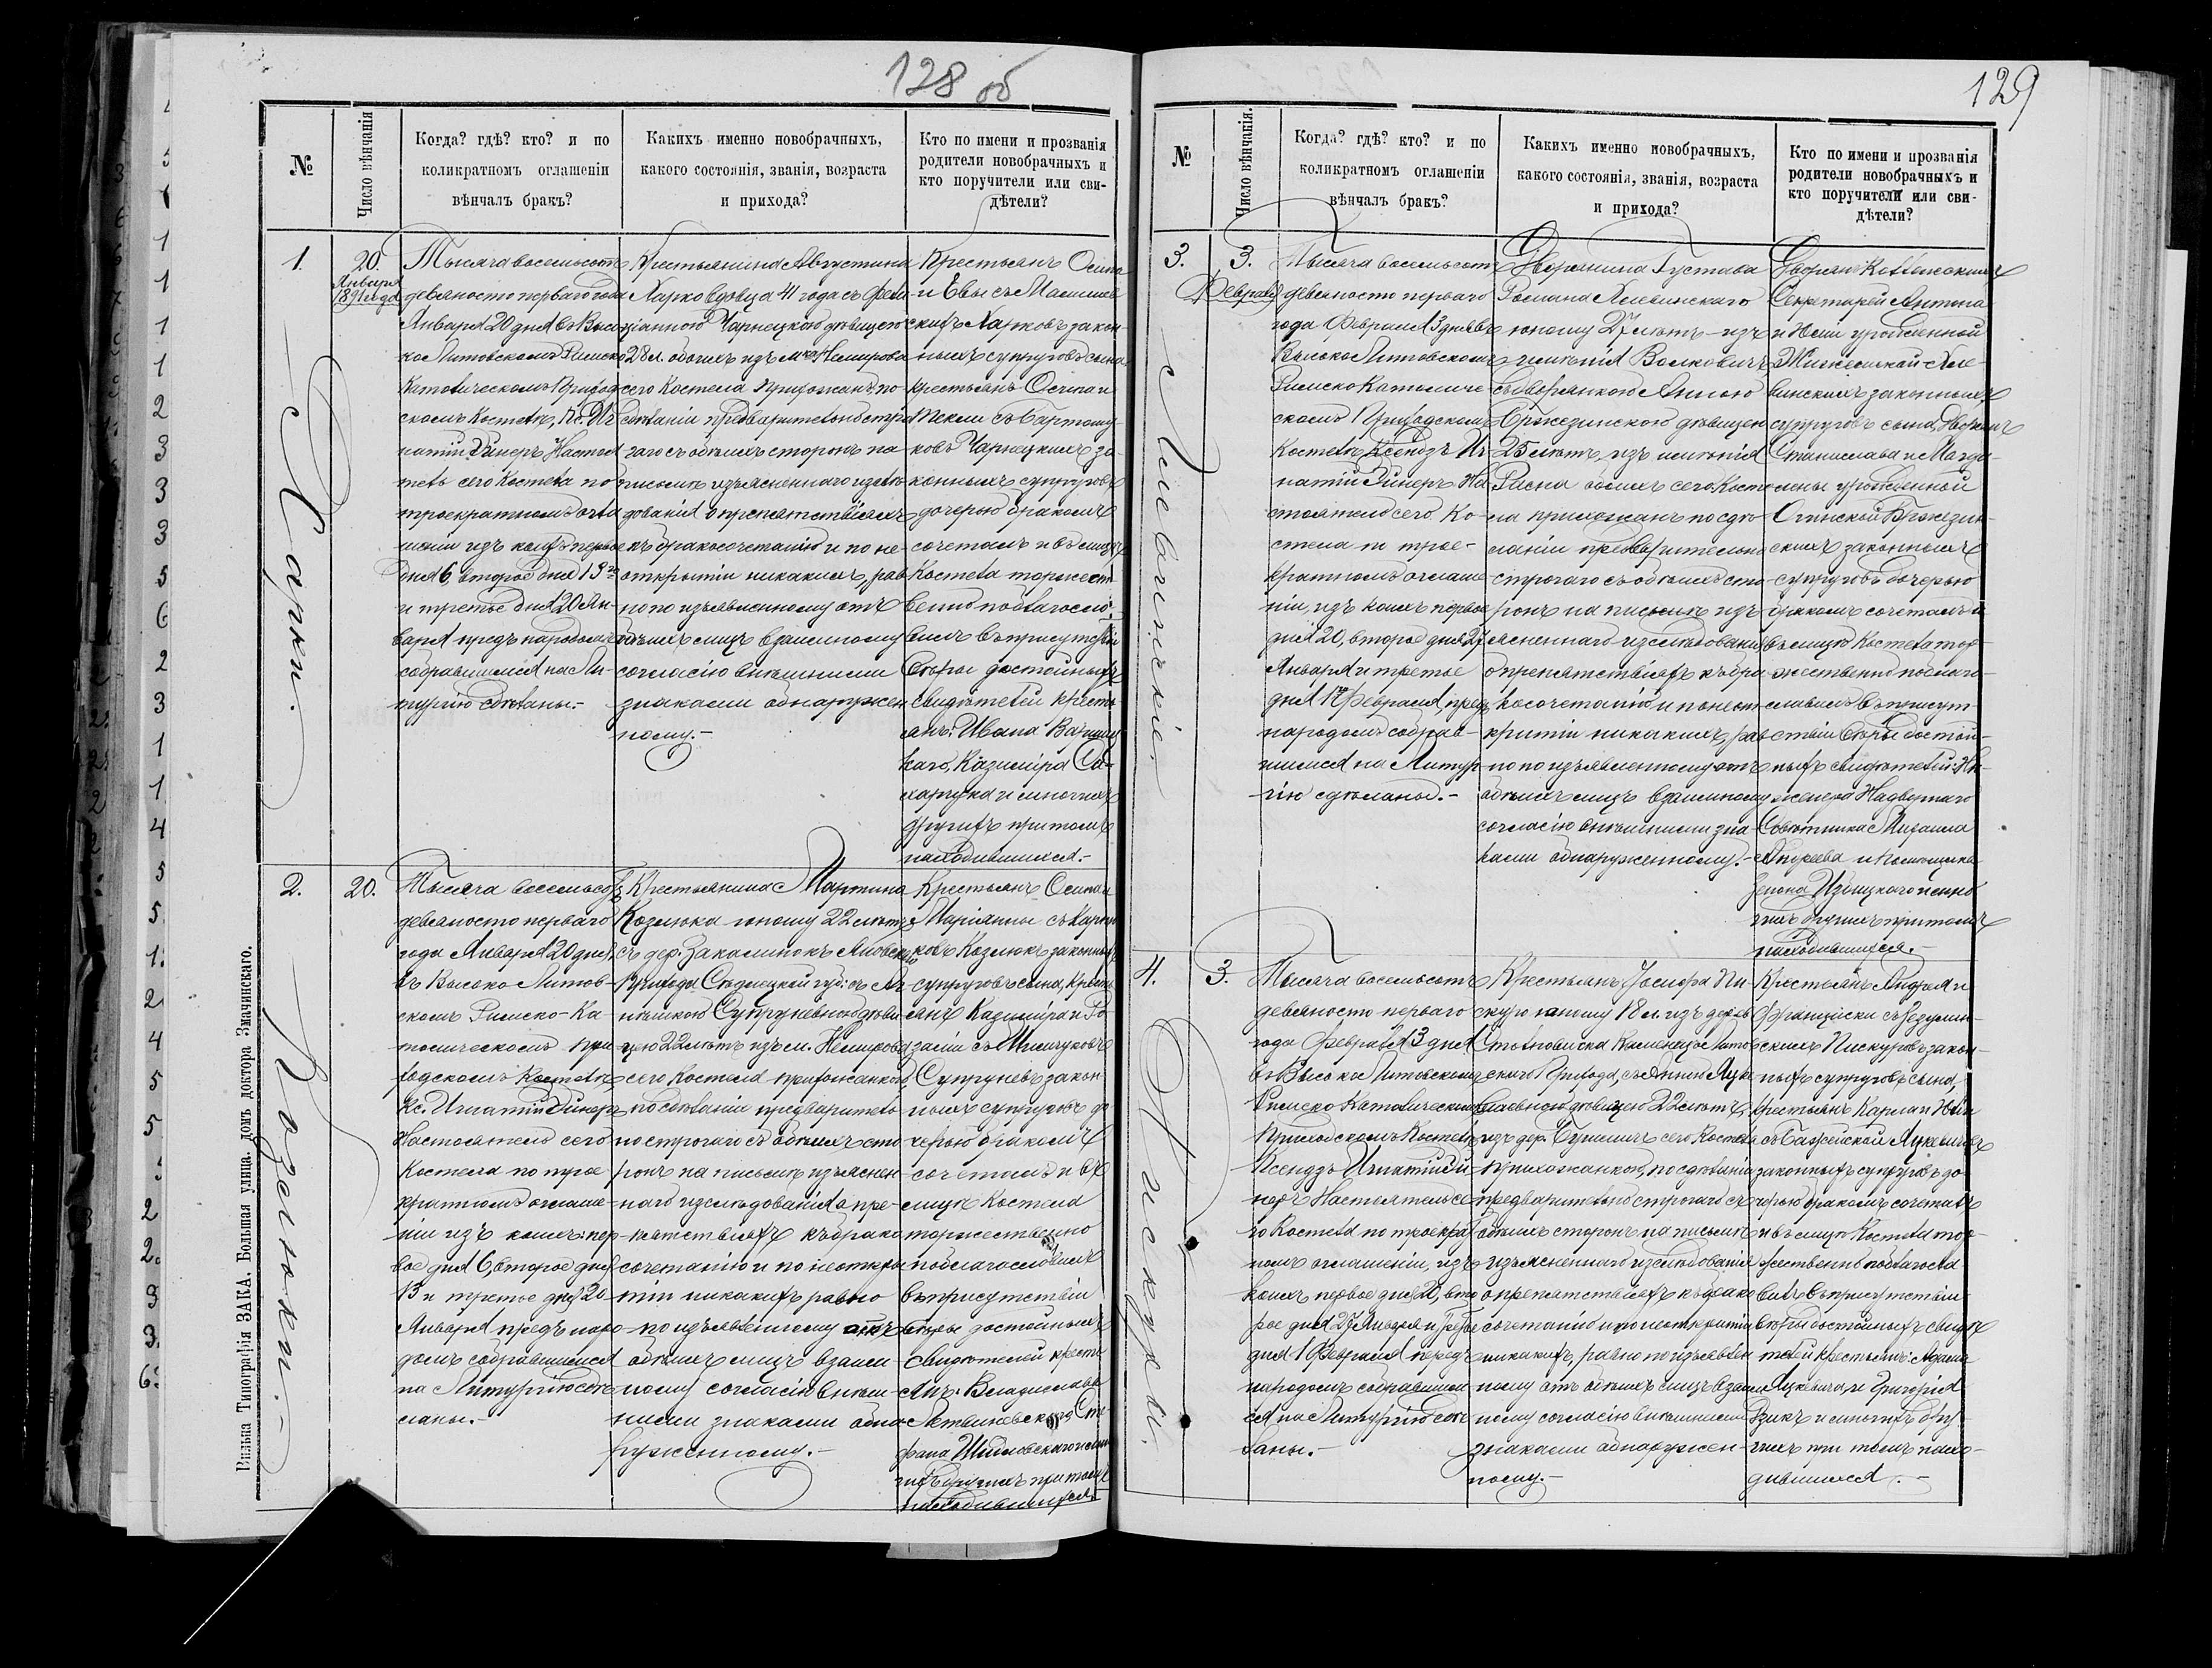 128 об
№
Число вѣнчанія
Когда? гдѣ? кто? и по
коликратномъ оглашеніи
вѣнчалъ бракъ?
Какихъ именно новобрачныхъ,
какого состоянія, званія, возраста
и прихода?
Кто по имени и прозванія
родители новобрачныхъ и
кто поручители или сви-
дѣтели?
1.
20.
Января
1891 года
Харки.
Тысяча восемьсотъ
девяносто перваго года
Января 20 дня въ Высо
ко Литовскомъ Римско
Католическомъ Приход
скомъ Костелѣ, Кс. Иг
натій Динеръ Настоя
тель сего Костела по
троекратномъ огла
шеніи изъ коихъ первое
дня 6, второе дня 13
и третье дня 20 Ян-
варя предъ народомъ
собравшимся на Ли-
тургію сдѣланы.-
Крестьянина Августина
Харко вдовца 41 года съ Фели-
ціанною Чарнецкою дѣвицею
28 л. обоихъ изъ м. Немирова
сего Костела Прихожанъ, по
сдѣланіи предварительно стро
гаго съ обѣихъ сторонъ на
письмѣ изъясненнаго изслѣ
дованія о препятствіяхъ
къ бракосочетанію и по не-
открытіи никакихъ, рав
но по изъявленному отъ
обѣихъ лицъ взаимному
согласію внѣшними
знаками обнаружен
ному.-
Крестьянъ Осипа
и Евы съ
Харковъ закон-
ныхъ супруговъ сына
крестьянъ Осипа и
Теклі съ
ковъ Чарнецкихъ за-
конныхъ супруговъ
дочерью бракомъ
сочеталъ и въ лицѣ
Костела торжест
венно поблагосло-
вилъ въ присутствіи
Вѣры достойныхъ
свидѣтелей кресть
янъ: Ивана
Казиміра Са-
харчука и многихъ
другихъ притомъ
находившихся.-
2.
20.
Козлюки.-
Тысяча восемьсотъ
девяносто перваго
года Января 20 дня,
въ Высоко Литов-
скомъ Римско-Ка-
толическомъ При
ходскомъ Костелѣ
Кс. Игнатій Динеръ
Настоятель сего
Костела по трое
кратномъ оглаше-
ніи изъ коихъ: пер-
вое дня 6, второе дня
13 и третье дня 20
Января предъ наро-
домъ собравшимся
на Литургію сдѣ-
ланы.-
Крестьянина Мартина
Козлюка юношу 22 лѣтъ
съ дер. Закалинокъ
Прихода Сѣдлецкой губ: съ
Супруневною дѣви
цею 22 лѣтъ изъ м. Немирова
сего Костела прихожанкою,
по сдѣланіи предваритель
но строгаго съ обѣихъ сто
ронъ на письмѣ изъяснен-
наго изслѣдованія о пре-
пятствіяхъ къ брако
сочетанію и по неоткры
тіи никакихъ равно
по изъявленному отъ
обѣихъ лицъ взаим
ному согласію внѣш-
ними знаками обна
руженному.-
Крестьянъ Осипа и
Маріанны съ
ковъ Козлюкъ законныхъ
супруговъ сына, кресть
янъ Казиміра и Ро
заліи съ
Супруневъ закон
ныхъ супруговъ до
черью бракомъ
сочеталъ и въ
лицѣ Костела
торжественно
поблагословилъ
въ присутствіи
Вѣры достойныхъ
свидѣтелей кресть
янъ: Владислава
Сте-
фана
гихъ другихъ притомъ
находившихся.-
Вилька Типографія ЗАКА. Большая улица. домъ доктора Значинскаго.
129
№
Число вѣнчанія.
Когда? гдѣ? кто? и по
коликратномъ оглашеніи
вѣнчалъ бракъ?
Какихъ именно новобрачныхъ,
какого состоянія, званія, возраста
и прихода?
Кто по имени и прозванія
родители новобрачныхъ и
кто поручители или сви-
дѣтели?
3.
3.
Февраля
Тысяча восемьсотъ
девяносто перваго
года Февраля 3 дня въ
Высоко Литовскомъ
Римско Католиче-
скомъ Приходскомъ
Костелѣ Ксендзъ Иг-
натій Динеръ На
стоятель сего Ко-
стела по трое-
кратномъ оглаше
ніи, изъ коихъ первое
дня 20, второе дня 27
Января и третье
дня 1 Февраля, предъ
народомъ собрав-
шимся на Литур-
гію сдѣланы.-
Дворянина Густава
Романа
юношу 27 лѣтъ - изъ
имѣнія Волковичъ
съ дворянкою Анною
Бржезинскою дѣвицею
25 лѣтъ, изъ имѣнія
Рясна обоихъ сего Косте
ла прихожанъ по сдѣ-
ланіи предварительно
строгаго съ обѣихъ сто
ронъ на письмѣ изъ
ясненнаго изслѣдованія
о препятствіяхъ къ бра
косочетанію и по неот
крытіи никакихъ, рав
но по изъявленному отъ
обѣихъ лицъ взаимному
согласію внѣшними зна
ками обнаруженному.-
Дворянъ
Секретарей Антона
и урожденной
винскихъ законныхъ
супруговъ сына, Дворянъ
Станислава и Магда
лены урожденной
Бржезин-
скихъ законныхъ
супруговъ дочерью
бракомъ сочеталъ и
въ лицѣ Костела тор-
жественно поблаго-
словилъ въ присут-
ствіи Вѣры достой-
ныхъ свидѣтелей: Ин-
женера Надворнаго
Совѣтника Михаила
Андреева и помѣщика
Зенона Избицкаго и мно
гихъ другихъ притомъ
находившихся.-
4.
3.
Пискуры.
Тысяча восемьсотъ
девяносто перваго
года Февраля 3 дня
въ Высоко Литовскомъ
Римско Католическомъ
Приходскомъ Костелѣ
Ксендзъ Игнатій Ди-
неръ Настоятель се
го Костела по троекрат
номъ оглашеніи, изъ
коихъ первое дня 20, вто
рое дня 27 Января и третье
дня 1 Февраля передъ
народомъ собравшим
ся на Литургію сдѣ
ланы.-
Крестьянъ Іосифа Пи-
скуру юношу 18 л. изъ дерев
Каменецъ Литов
скаго Прихода, съ Анною Луке
вичевною дѣвицею 22 лѣтъ,
изъ дер. сего Костела
прихожанкою, по сдѣланіи
предварительно строгаго съ
обѣихъ сторонъ на письмѣ
изъясненнаго изслѣдованія
о препятствіяхъ къ брако
сочетанію и по неоткрытіи
никакихъ, равно по изъявлен
ному отъ обѣихъ лицъ взаим
ному согласію внѣшними
знаками обнаружен-
ному.-
Крестьянъ Андрея и
Францішки съ
скихъ Пискуровъ закон-
ныхъ супруговъ сына,
крестьянъ Карла и
съ Лукевичевъ
законныхъ супруговъ до
черью бракомъ сочеталъ
и въ лицѣ Костела тор-
жественно поблагосло
вилъ въ присутствіи
вѣры достойныхъ свидѣ
телей крестьянъ: Адама
Лукевича, и Григорія
и многихъ дру-
гихъ при томъ нахо-
дившихся.-